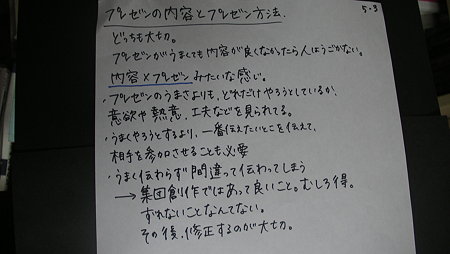 プレゼンの内容とプレゼン方法.
5-3
どっちも大切。
プレゼンがうまくても内容が良くなかったら人はうごかない。
内容×プレゼンみたいな感じ。
・プレゼンのうまさよりも、どれだけやろうとしているか、
意欲や熱意、工夫などを見られてる。
・うまくやろうとするより、一番伝えたいとこを伝えて、
相手を参加させることも必要
・うまく伝わらず間違って伝わってしまう
→集団創作ではあって良いこと。むしろ得。
ずれないことなんてない。
その後、修正するのが大切。